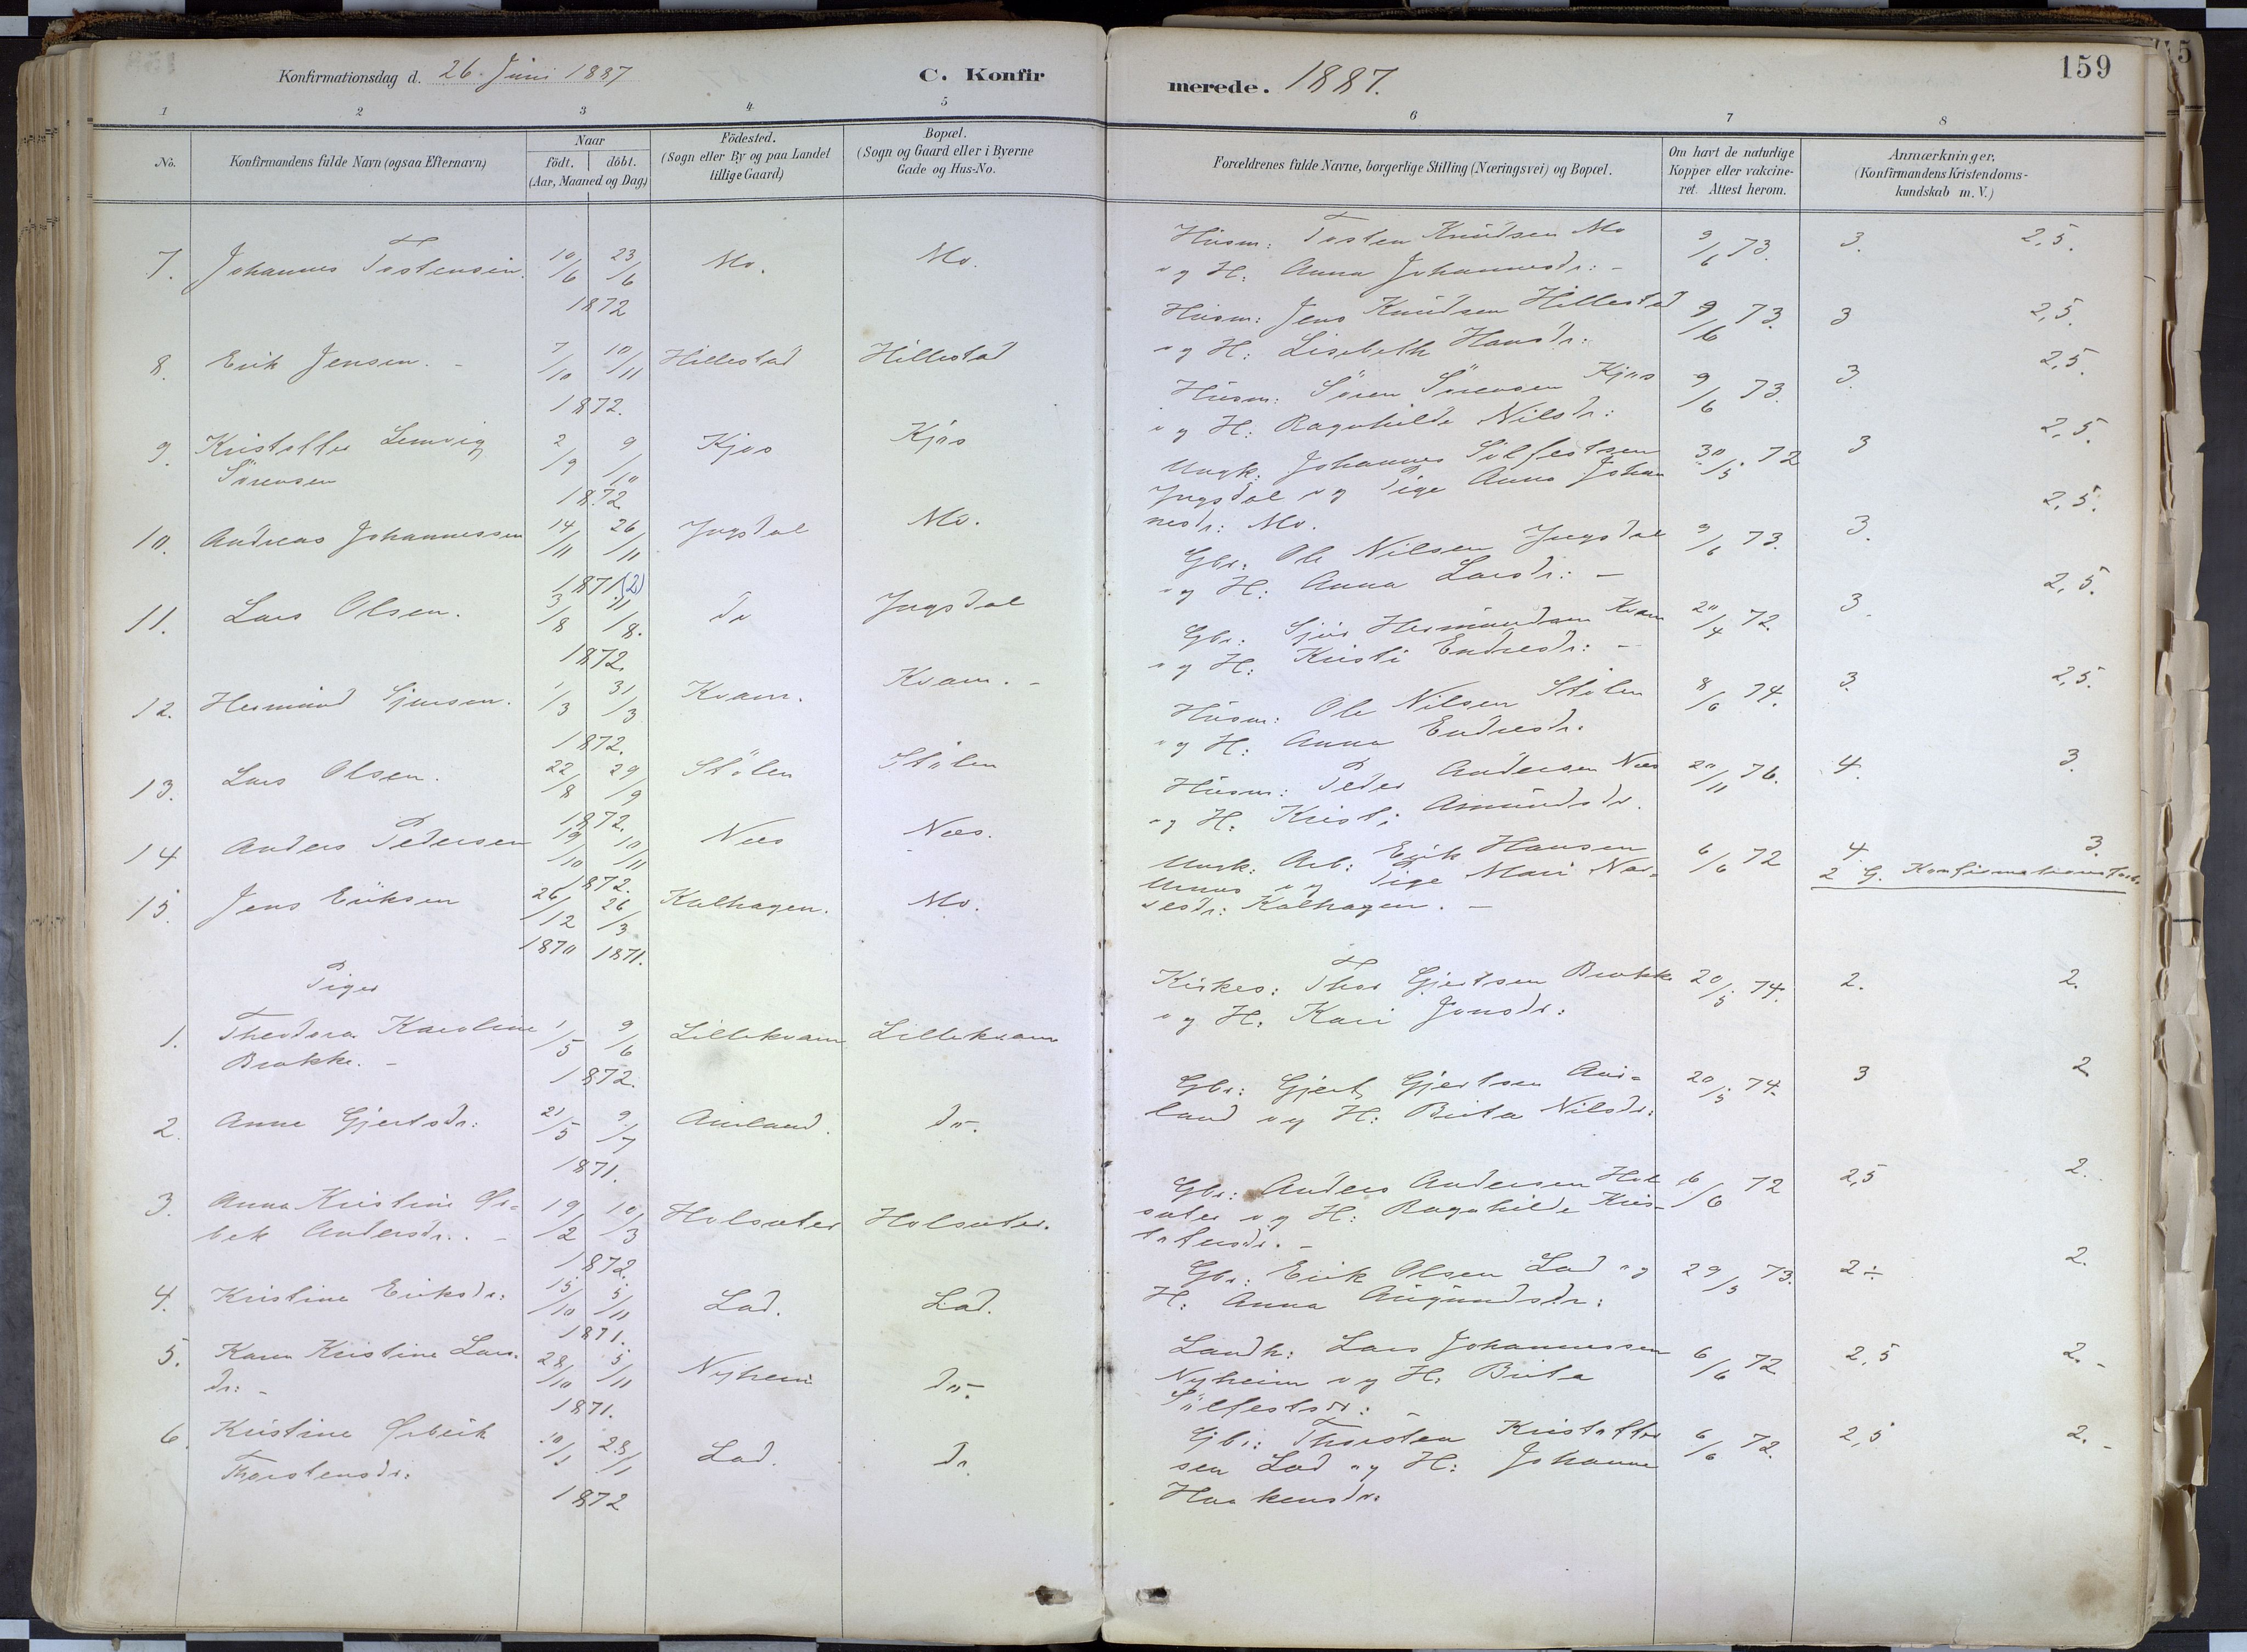 Konfirmationsdag d. 26. Juni 1887
C. Konfir
merede. 1887.
159
1 2 3 4 5 6 7 8
No.
Konfirmandens fulde Navn (ogsaa Efternavn)
Naar
födt. döbt.
(Aar, Maaned og Dag)
Födested.
(Sogn eller By og paa Landet
tillige Gaard)
Bopæl.
(Sogn og Gaard eller i Byerne
Gade og Hus-No.
Forældrenes fulde Navne, borgerlige Stilling (Næringsvei) og Bopæl.
Om havt de naturlige
Kopper eller vakcine-
ret. Attest herom.
Anmærkninger,
(Konfirmandens Kristendoms-
kundskab m. V.)
7. Johannes Tostensen. 10/6 23/6 Mo. Mo.
1872
Husm: Tosten Knudsen Mo 9/6 73. 3. 2,5.
og H: Anna Johannesdr: -
8. Erik Jensen. - 7/10 10/11 Hillestad Hillestad
1872.
Husm: Jens Knudsen Hillestad 9/6 73. 3 2,5.
og H: Lisebeth Hansdr:
9. Kristoffer Lemvig 2/9 9/10 Kjos Kjos
Sörensen
1872.
Husm: Sören Sörensen Kjos 9/6 73. 3. 2,5.
og H: Ragnhilde Nilsdr:
10. Andreas Johannessen 14/11 26/11 Ingsdal Mo.
1871.(2)
Ungk: Johannes Sölfestsen 30/5. 72 3 2,5.
Ingsdal og Pige Anna Johan
nesdr: Mo.
11. Lars Olsen. 3/8 11/8. do Ingsdal
1872.
Gbr: Ole Nilsen Ingsdal 9/6 73. 3. 2,5.
og H: Anna Larsdr: -
12. Hermund Sjursen. 1/3 31/3 Kvam. Kvam. -
1872.
Gbr: Sjur Hermundsen Kvam 20/4 72. 3. 2,5.
og H: Kristi Endresdr: -
13. Lars Olsen. 22/8 29/9 Stölen Stölen
1872.
Husm: Ole Nilsen Stölen 8/6 74. 3. 2,5.
og H: Anna Endresdr.
14 Anders Pedersen 19/10 10/11 Næs Næs.
1872.
Husm: Peder Andersen Næs 20/11 76. 4. 3.
og H: Kristi Amundsdr.
15. Jens Eriksen 26/12 26/3 Kalhagen. Mo.
1870 1871.
Unrk: Arb: Erik Hansen 6/6 72 4. 3.
og Pige Mari
Kalhagen. -
2 G.
Piger
1. Theodora Karoline 1/5 9/6 Lillekvam Lillekvam
Brokke. -
1872.
Kirkes: Thor Gjertsen Brokke 20/5 74. 2. 2.
og H: Kari Jonsdr:
2. Anne Gjertsdr: 21/5 9/7 Aurland. do-.
1871.
Gbr: Gjert Gjertsen Aur= 20/5 74. 3 2
land og H: Brita Nilsdr:
3. Anna Kristine Ør= 19/2 10/3 Holsæter Holsæter.
bek Andersdr: -
1872.
Gbr: Anders Andersen Hol 6/6 72 2,5 2.
sæter og H: Ragnhilde Kris-
tofersdr. -
4. Kristine Eriksdr: 15/10 5/11 Lad. Lad.
1871.
Gbr: Erik Olsen Lad og 29/5 73. 2÷ 2.
H: Anna Augundsdr:
5. Karen Kristine Lars- 28/10 5/11 Nyheim do-.
dr: -
1871.
Landh: Lars Johannessen 6/6 72 2,5 2. -
Nyheim og H: Brita
Sölfestsdr: -
6. Kristine Ørbeck 10/1 28/1 Lad. do
Thorstensdr:
1872
Gbr: Thorsten Kristoffer 6/6 72. 2,5 2. -
sen Lad og H: Johanne
Haakensdr: